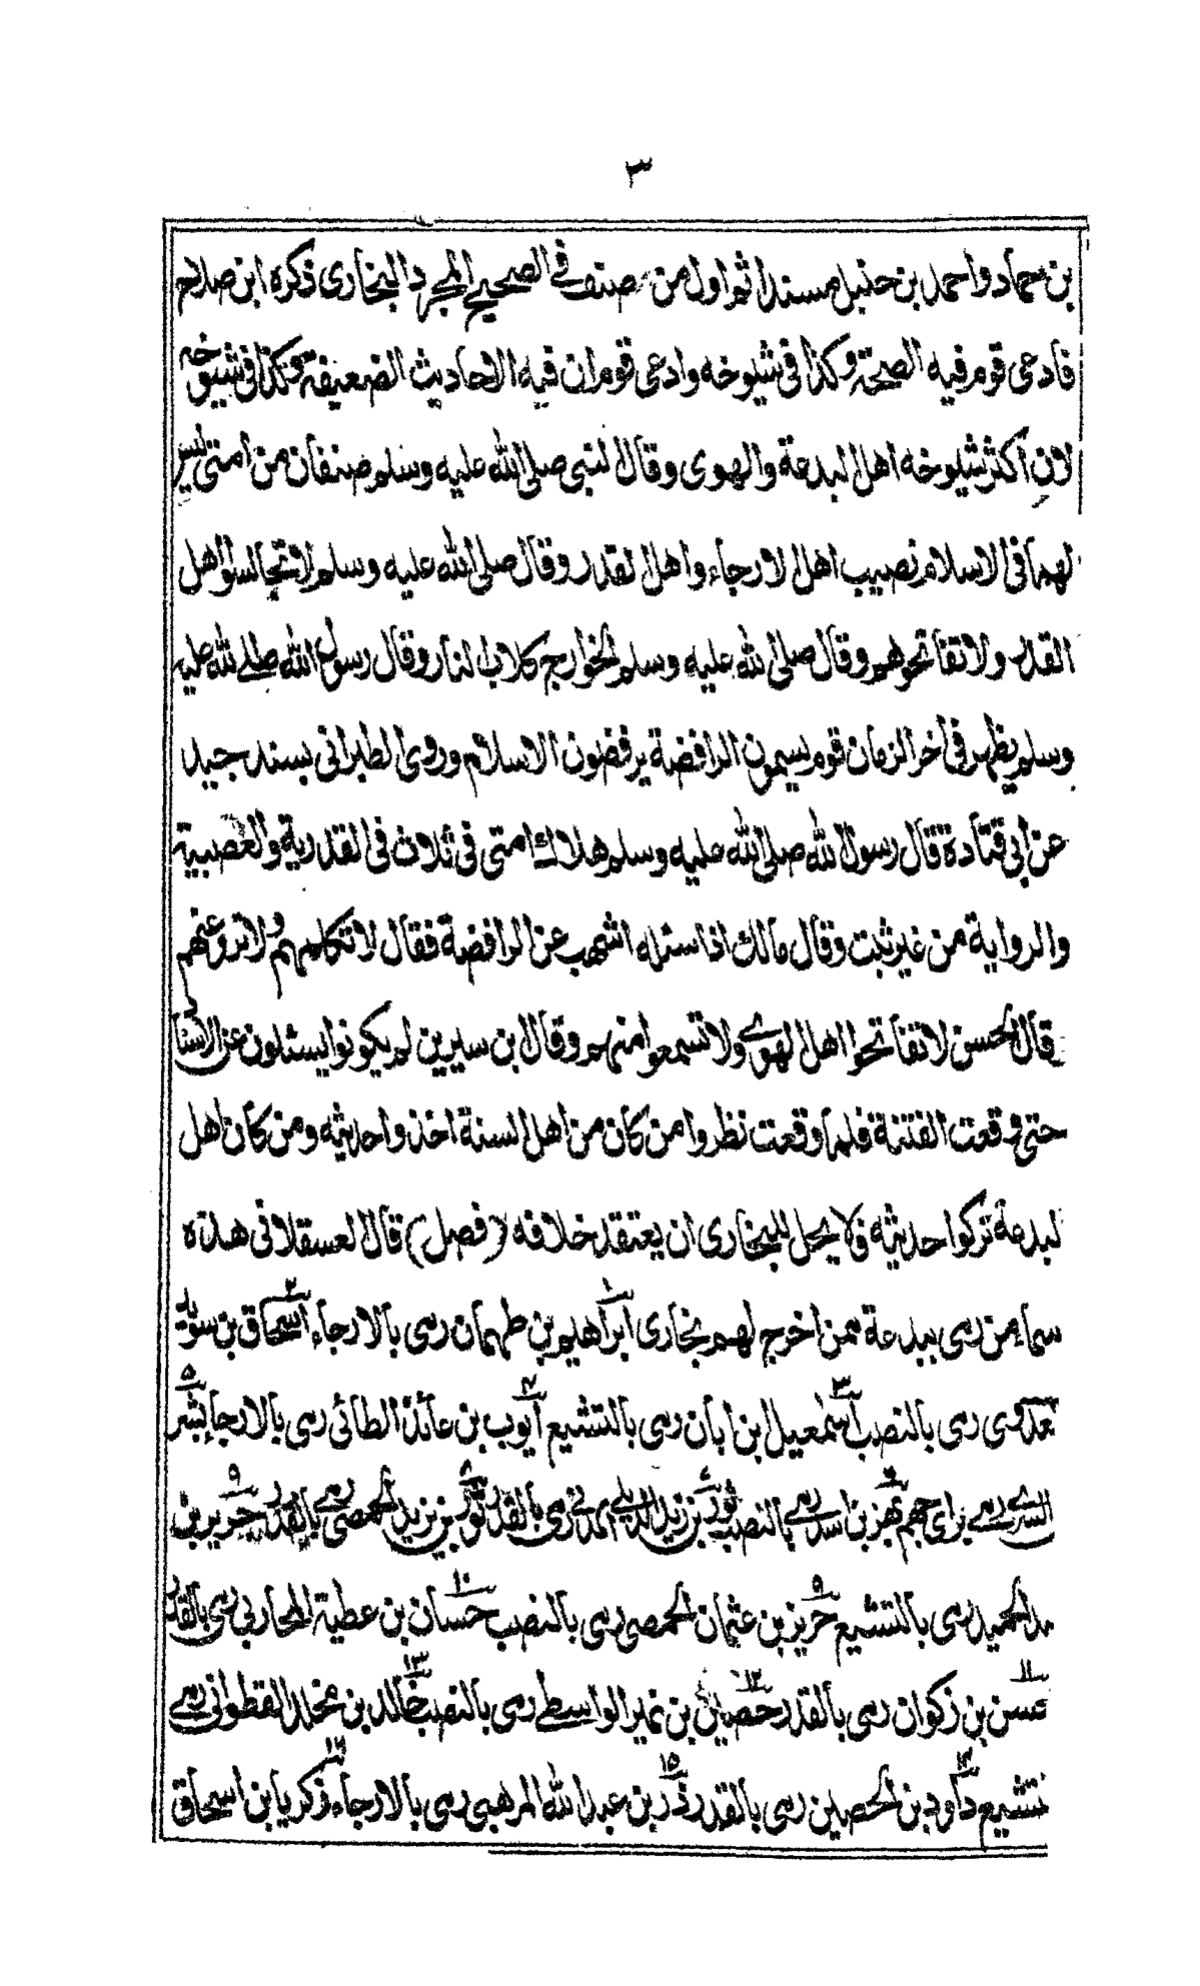 ٣
بن حماد و احمد بن حنبل مسندا ثم اول من صنف فی الصحیح المجرد البخاری ذکره ابن صلاح
فادعی قوم فیه الصحة و کذا فی شیوخه وادعی قوم ان فیه الاحادیث الضعیفة وکذا فی شیوخه
لان اکثر شیوخه اهل البدعة والهوی وقال لنبی صلی الله علیه وسلم صنفان من امتی لیس
لهما فی الاسلام نصیب اهل الارجاء واهل لقدر وقال صلی الله علیه وسلم لا تجالسوا اهل
القدر ولا تفاتحوهم وقال صلی لله علیه وسلم الخوارج کلاب لنار وقال رسول الله صلے لله علیه
وسلم یظهر فی اخر الزمان قوم یسمون الرافضة یرفضون الاسلام وروی الطبرانی بسند جید
عن ابی قتادة قال رسول لله صلی الله علیه وسلم هلاك امتی فی ثلاث فی القدریة والعصبیة
والروایة من غیر ثبت وقال مالك اذا سئله اشهب عن الرافضة فقال لا تکلمهم ولا ترو عنهم
قال الحسن لا تفاتحوا اهل الهوے ولا تسمعوا منهم وقال بن سیرین لم یکونوا یسئلون عن الاسناد
حتی وقعت الفتنة فلما وقعت نظروا من کان من اهل السنة اخذوا حدیثه ومن کان اهل
لبدعة ترکوا حدیثه فلا یحل للبخاری ان یعتقد خلافه (فصل) قال لعسقلانی هذه
سماء من رمی ببدعة ممن اخرج لهم بخاری ١ ابراهیم بن طهمان رمی بالارجاء ٢ اسحاق بن سوید
لعدوی رمی بالنصب ٣ اسمٰعیل بن ابان رمی بالتشیع ٤ ایوب بن عائذ الطائی رمی بالارجاء ٥ بشر
السری رمے برای جهم بهز بن اسد رمے بالنصب ثور بن زید الدیلی المدنی رمی بالقدر ثور بن یزید الحمصی رمے بالقدر ٩ جریر بن
بد الحمید رمی بالتشیع ٩ حریز بن عثمان الحمصی رمی بالنصب ١٠ حسان بن عطیة المحاربی رمی بالقدر
١١ حسن بن ذکوان رمی بالقدر ١٢ حصین بن نمیر الواسطے رمی بالنصب ١٣ خالد بن مخلد القطوانی رمے
لتشیع ١٤ داود بن الحصین رمی بالقدر ١٥ ذر بن عبد الله المرهبی رمی بالارجاء ١٦ زکریا بن اسحاق